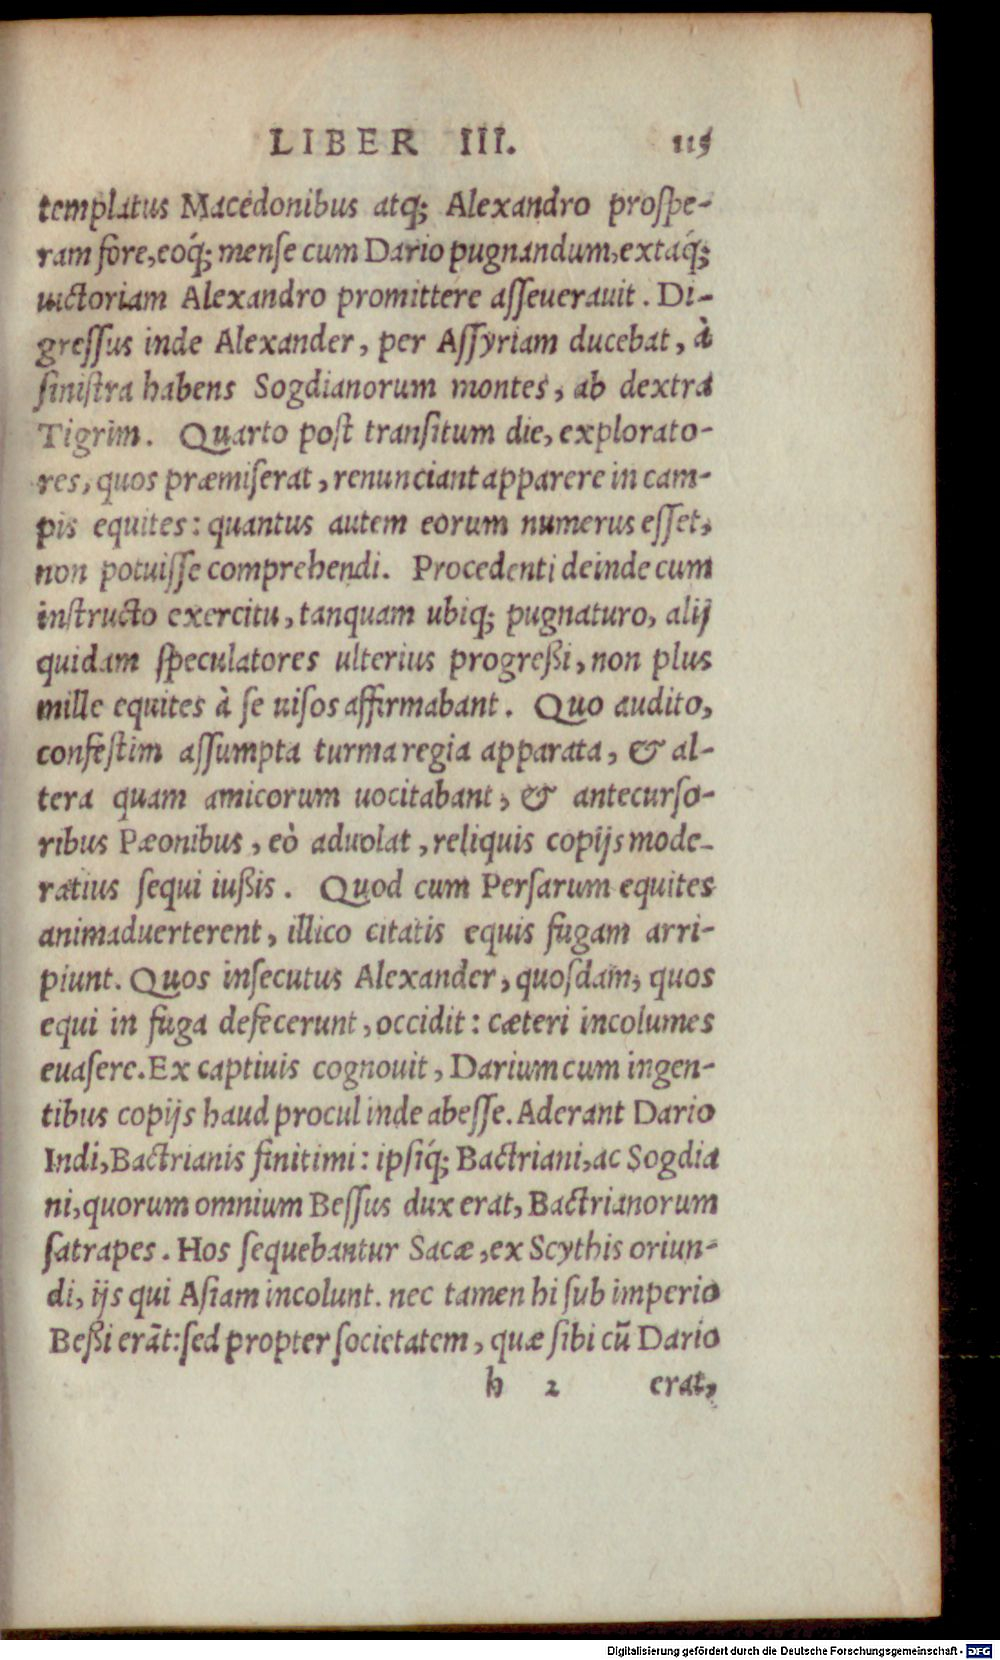 LIBER III. 115
templatus Macedonibus atq; Alexandro proſpe-
ram fore, eoq́; menſe cum Dario pugnandum, extaq́;
uictoriam Alexandro promittere aſſeuerauit. Di-
greſſus inde Alexander, per Aſſyriam ducebat, à
ſiniſtra habens Sogdianorum montes, ab dextra
Tigrim. Quarto poſt tranſitum die, explorato-
res, quos præmiſerat, renunciant apparere in cam-
pis equites: quantus autem eorum numerus eſſet,
non potuiſſe comprehendi. Procedenti deinde cum
inſtructo exercitu, tanquam ubiq; pugnaturo, alij
quidam ſpeculatores ulterius progreßi, non plus
mille equites à ſe uiſos affirmabant. Quo audito,
confeſtim aſſumpta turma regia apparata, & al-
tera quam amicorum uocitabant, & antecurſo-
ribus Pæonibus, eò aduolat, reliquis copijs mode-
ratius ſequi iußis. Quod cum Perſarum equites
animaduerterent, illico citatis equis fugam arri-
piunt. Quos inſecutus Alexander, quoſdam, quos
equi in fuga defecerunt, occidit: cæteri incolumes
euaſere. Ex captiuis cognouit, Darium cum ingen-
tibus copijs haud procul inde abeſſe. Aderant Dario
Indi, Bactrianis finitimi: ipſiq́; Bactriani, ac Sogdia
ni, quorum omnium Beſſus dux erat, Bactrianorum
ſatrapes. Hos ſequebantur Sacæ, ex Scythis oriun-
di, ijs qui Aſiam incolunt. nec tamen hi ſub imperio
Beßi erāt: ſed propter ſocietatem, quæ ſibi cū Dario
h 2 erat,
Digitalisierung gefördert durch die Deutsche Forschungsgemeinschaft - DFG